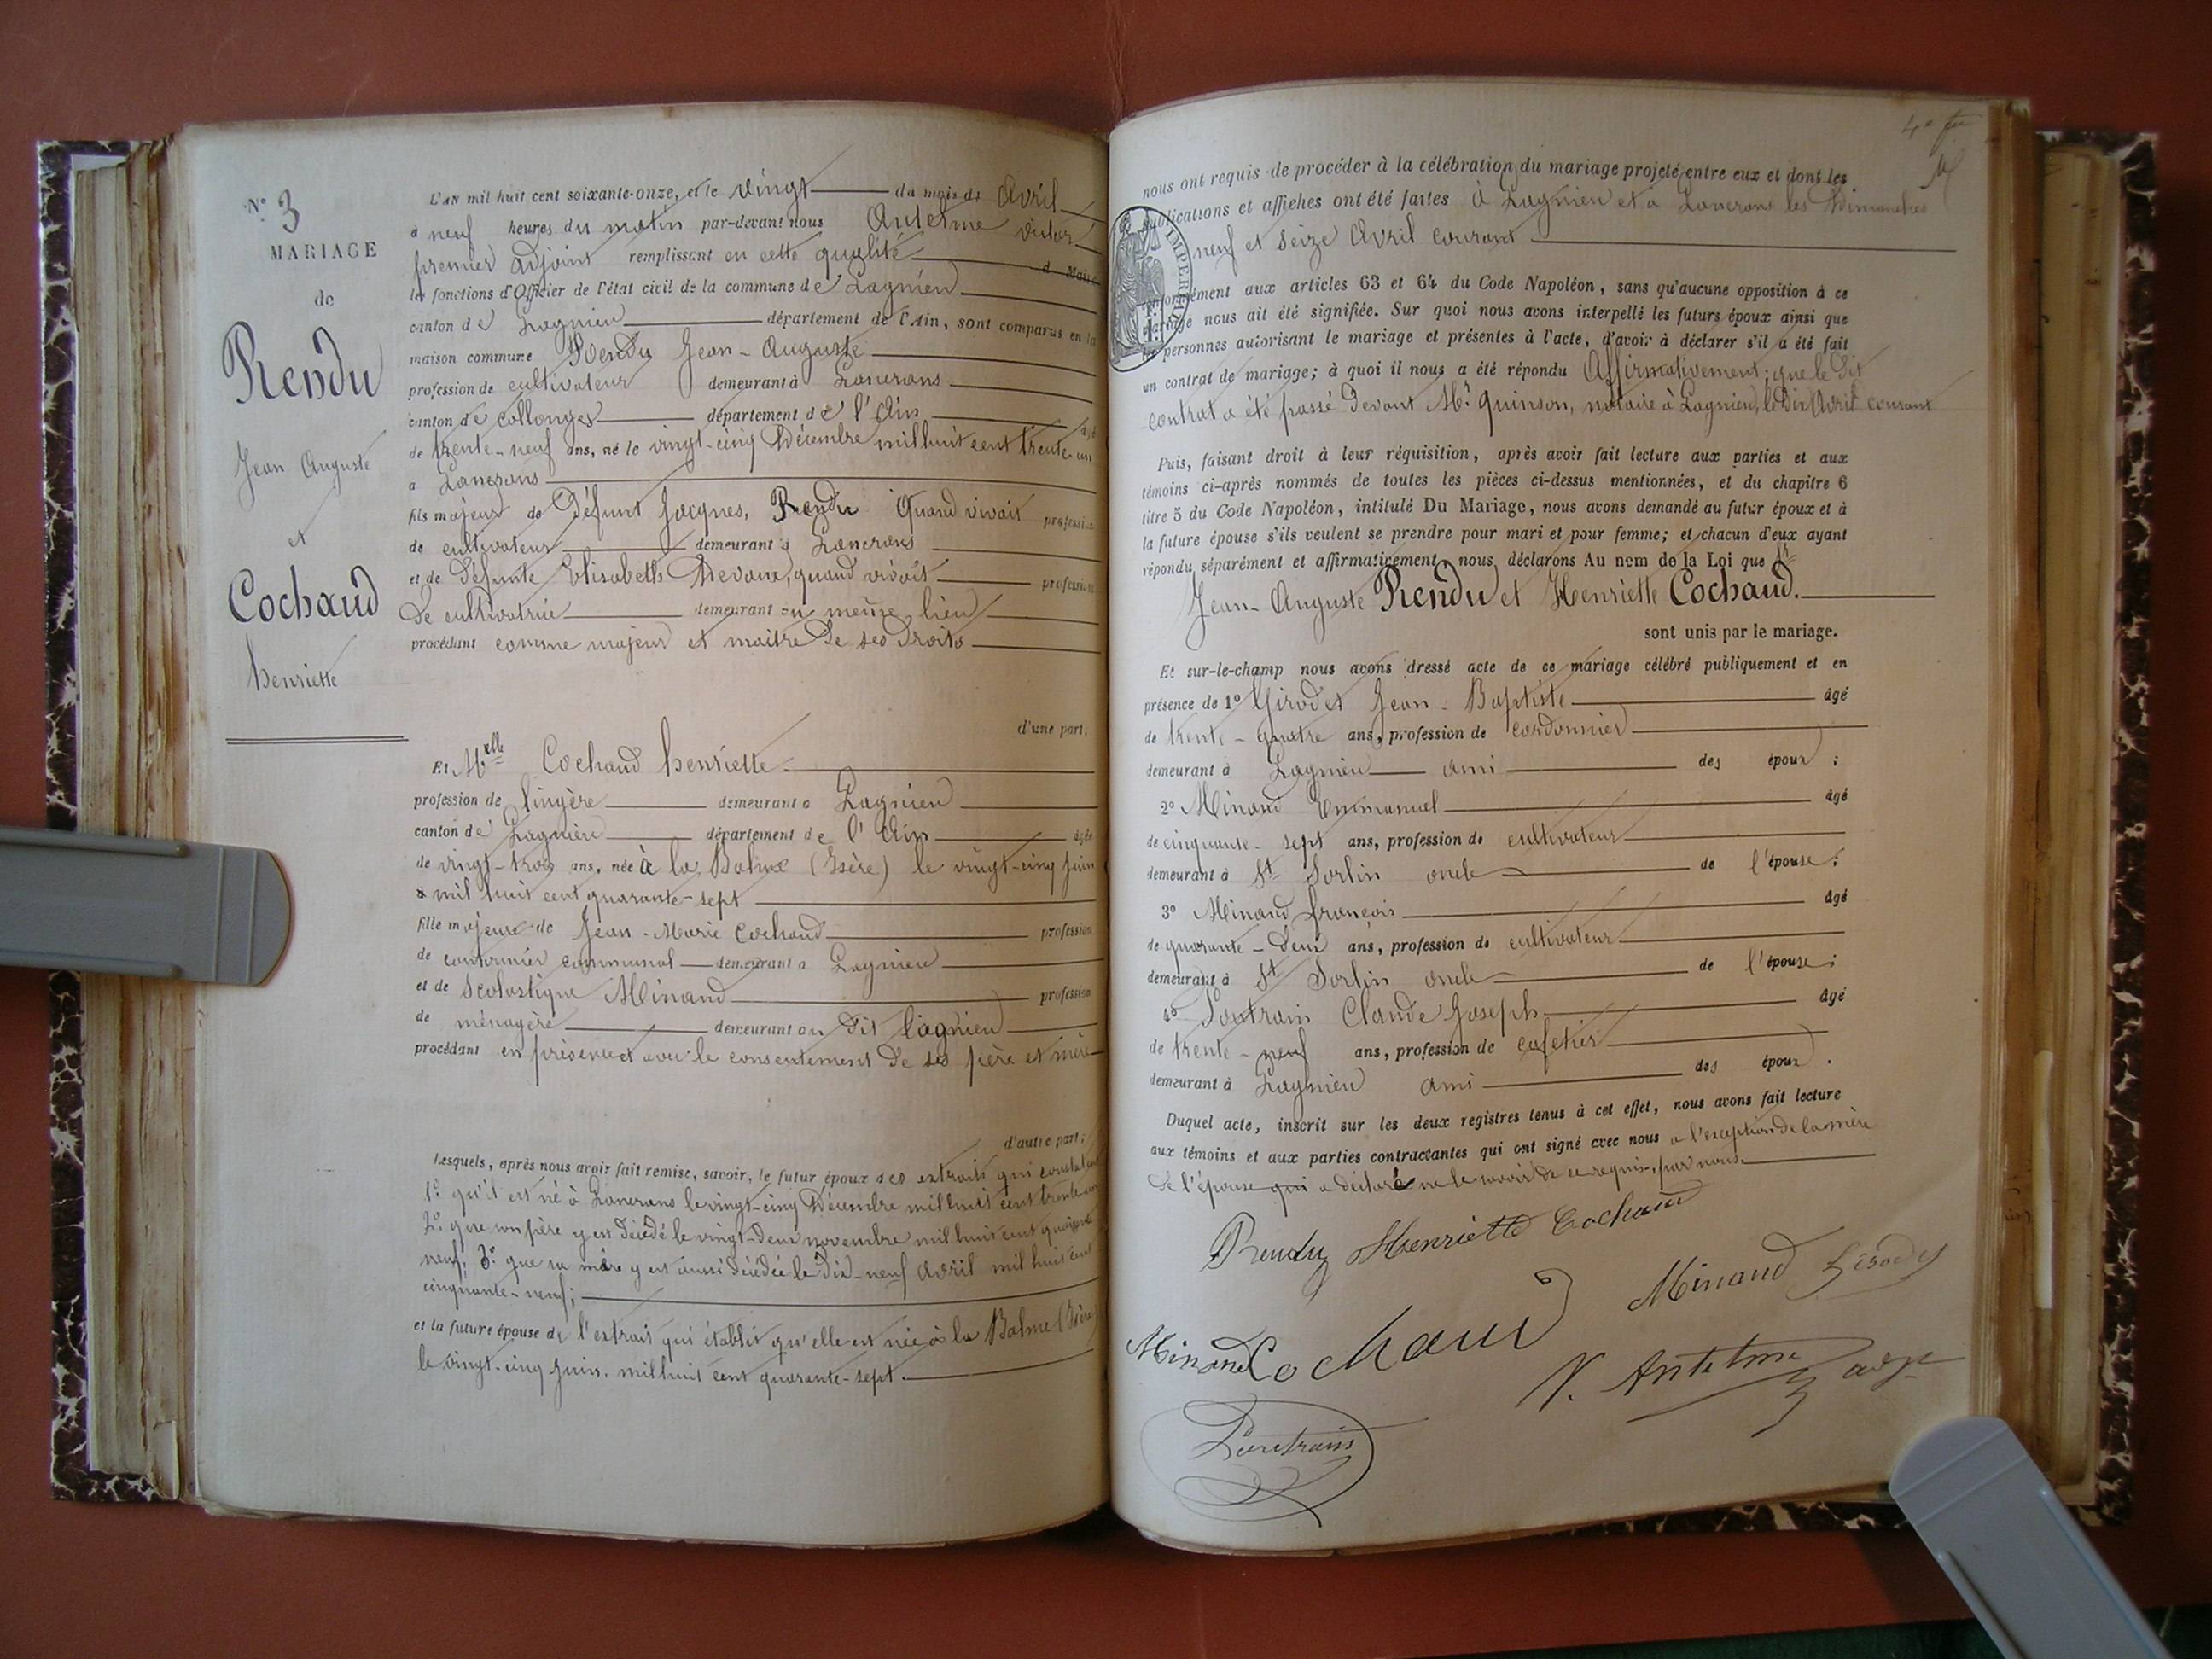 N° 3
MARIAGE
de
Rendu
Jean Auguste
et
Cochaud
henriette
L'AN mil huit cent soixante-onze, et le vingt du mois de Avril
à neuf heures du matin par-devant nous Antelme Victor
premier adjoint remplissant en cette qualité d Maire
les fonctions d'Officier de l'état civil de la commune de Lagnieu
canton de Lagnieu département de l'Ain, sont comparus en la
maison commune Rendu Jean-Auguste
profession de cultivateur demeurant à Lancrans
canton de Collonges département de l'Ain agé
de trente-neuf ans, né le vingt-cinq Décembre mil huit cent trente-un
a Lancrans
fils majeur de Défunt Jacques, Rendu Quand vivait profession
de cultivateur demeurant à Lancrans
et de Défunte Elisabeth Devaux, quand vivait profession
de cultivatrice demeurant au même lieu
procédant comme majeur et maitre de ses droits
d'une part;
Et Melle Cochaud henriette
profession de lingère demeurant a Lagnieu
canton de Lagnieu département de l'Ain agée
de vingt-trois ans, née à la Balme (Isère) le vingt-cinq juin
à mil huit cent quarante-sept
fille majeure de Jean-Marie Cochaud profession
de cantonnier communal demeurant a Lagnieu
et de Scolastique Minand profession
de ménagère demeurant au dit Lagnieu
procédant en présence et avec le consentement de ses père et mère
d'autre part;
Lesquels, après nous avoir fait remise, savoir, le futur époux des extraits qui constatent
1° qu'il est né à Lancrans le vingt-cinq Décembre mil huit cent trente-un
2° que son père y est décédé le vingt-deux novembre mil huit cent quarante
neuf; 3° que sa mère y est aussi décédée le dix-neuf avril mil huit cent
cinquante-neuf;
et la future épouse de l'extrait qui établit qu'elle est née à la Balme (Isère)
le vingt-cinq juin, mil huit cent quarante-sept.
4e
nous ont requis de procéder à la célébration du mariage projeté entre eux et dont les
publications et affiches ont été faites à Lagnieu et à Lancrans les Dimanches
neuf et seize Avril courant
conformément aux articles 63 et 64 du Code Napoléon, sans qu'aucune opposition à ce
mariage nous ait été signifiée. Sur quoi nous avons interpellé les futurs époux ainsi que
les personnes autorisant le mariage et présentes à l'acte, d'avoir à déclarer s'il a été fait
un contrat de mariage; à quoi il nous a été répondu Affirmativement; que le dit
contrat a été passé devant Mr Quinson, notaire à Lagnieu, le dix Avril courant
Puis, faisant droit à leur réquisition, après avoir fait lecture aux parties et aux
témoins ci-après nommés de toutes les pièces ci-dessus mentionnées, et du chapitre 6
titre 5 du Code Napoléon, intitulé Du Mariage, nous avons demandé au futur époux et à
la future épouse s'ils veulent se prendre pour mari et pour femme; et chacun d'eux ayant
répondu séparément et affirmativement, nous déclarons Au nom de la Loi que
Jean-Auguste Rendu et Henriette Cochaud.
sont unis par le mariage.
Et sur-le-champ nous avons dressé acte de ce mariage célébré publiquement et en
présence de 1° Girodet Jean-Baptiste âgé
de trente-quatre ans, profession de cordonnier
demeurant à Lagnieu ami des époux;
2° Minand Emmanuel âgé
de cinquante-sept ans, profession de cultivateur
demeurant à St Sorlin oncle de l'épouse;
3° Minand françois âgé
de quarante-deux ans, profession de cultivateur
demeurant à St Sorlin oncle de l'épouse;
4° Soutrain Claude Joseph âgé
de trente-neuf ans, profession de cafetier
demeurant à Lagnieu ami des époux.
Duquel acte, inscrit sur les deux registres tenus à cet effet, nous avons fait lecture
aux témoins et aux parties contractantes qui ont signé avec nous a l'exception de la mère
de l'épouse qui a déclaré ne le savoir de ce requis, par nous.
Rendu Henriette Cochaud
Minand Girodet
Minand Cochaud
V. Antelme adjt